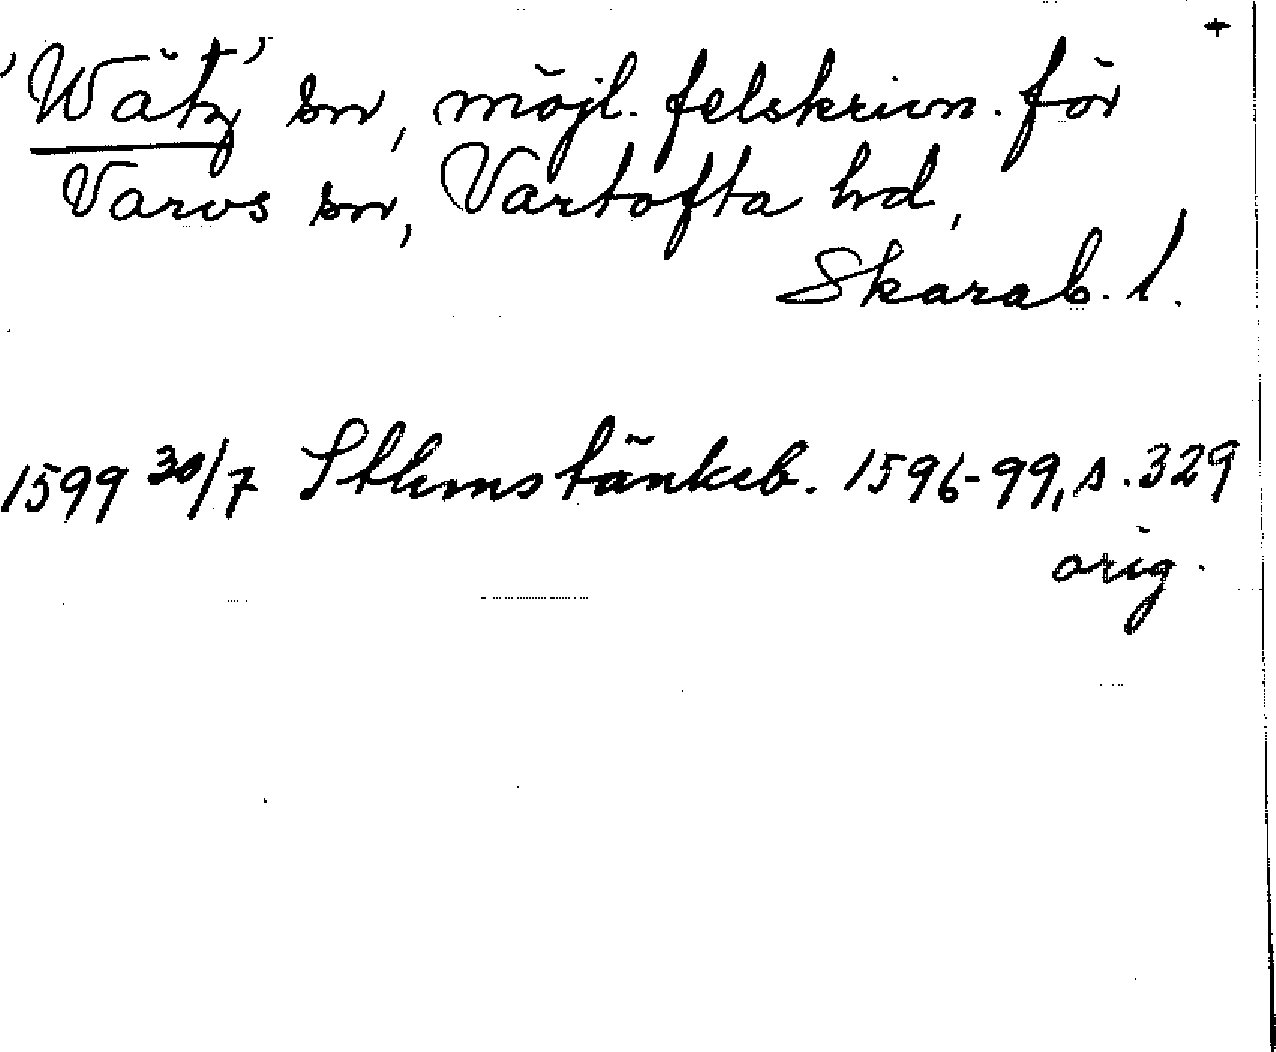 +
'Wätz' sn, möjl. felskrivn. för
Varvs sn, Vartofta hd,
Skarab. l.
1599 30/7 Sthms tänkeb. 1596-99, s. 329
orig.